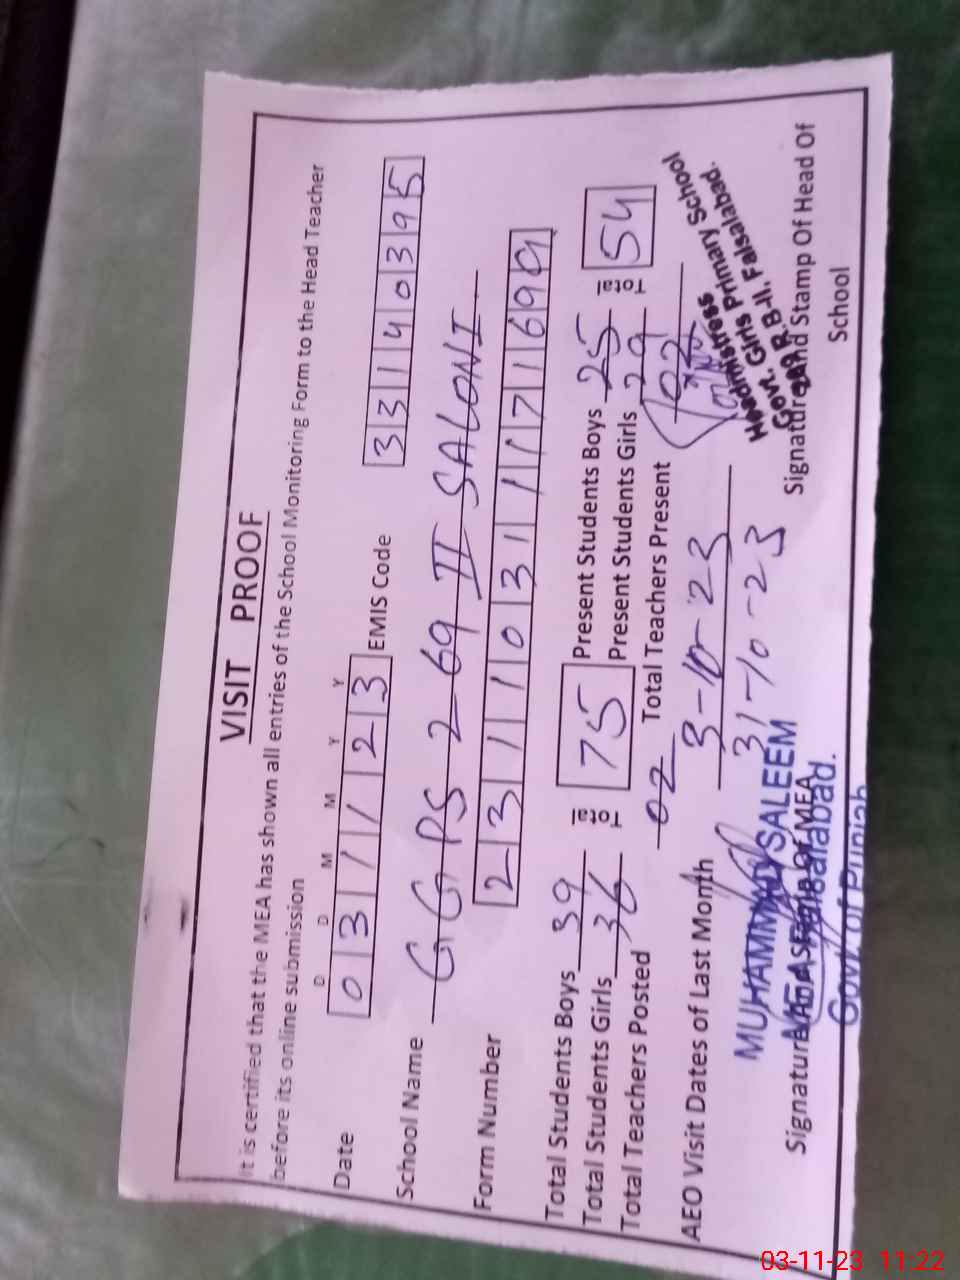 VISIT PROOF
It is certified that the MEA has shown all entries of the School Monitoring Form to the Head Teacher
before its online submission
D D M M Y Y
Date 0 3 1 1 2 3 EMIS Code 3 3 1 4 0 3 9 5
School Name GGPS 269 II SALONI
Form Number 2 3 1 1 0 3 1 1 1 7 1 6 9 9
Total Students Boys 39 Total 75 Present Students Boys 25 Total 54
Total Students Girls 36 Present Students Girls 29
Total Teachers Posted 02 Total Teachers Present 02
AEO Visit Dates of Last Month 3-10-23
31-10-23
MUHAMMAD SALEEM
MEA Faisalabad.
Govt. of Punjab
Signature And Stamp Of MEA
Headmistress
Govt. Girls Primary School
R.B-II, Faisalabad.
Signature and Stamp Of Head Of
School
03-11-23 11:22